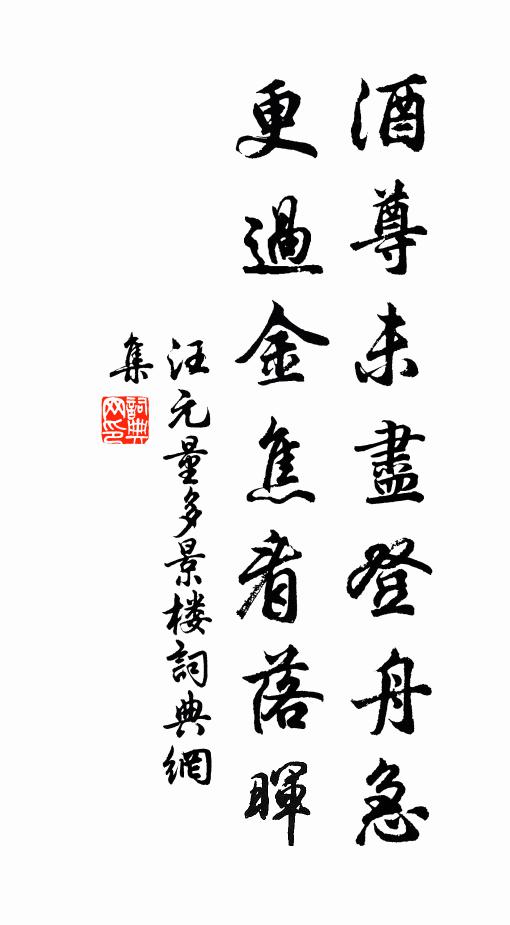 酒尊未盡登舟急
更過金焦看落暉
汪元量多景楼詞典網
集
詞典網印